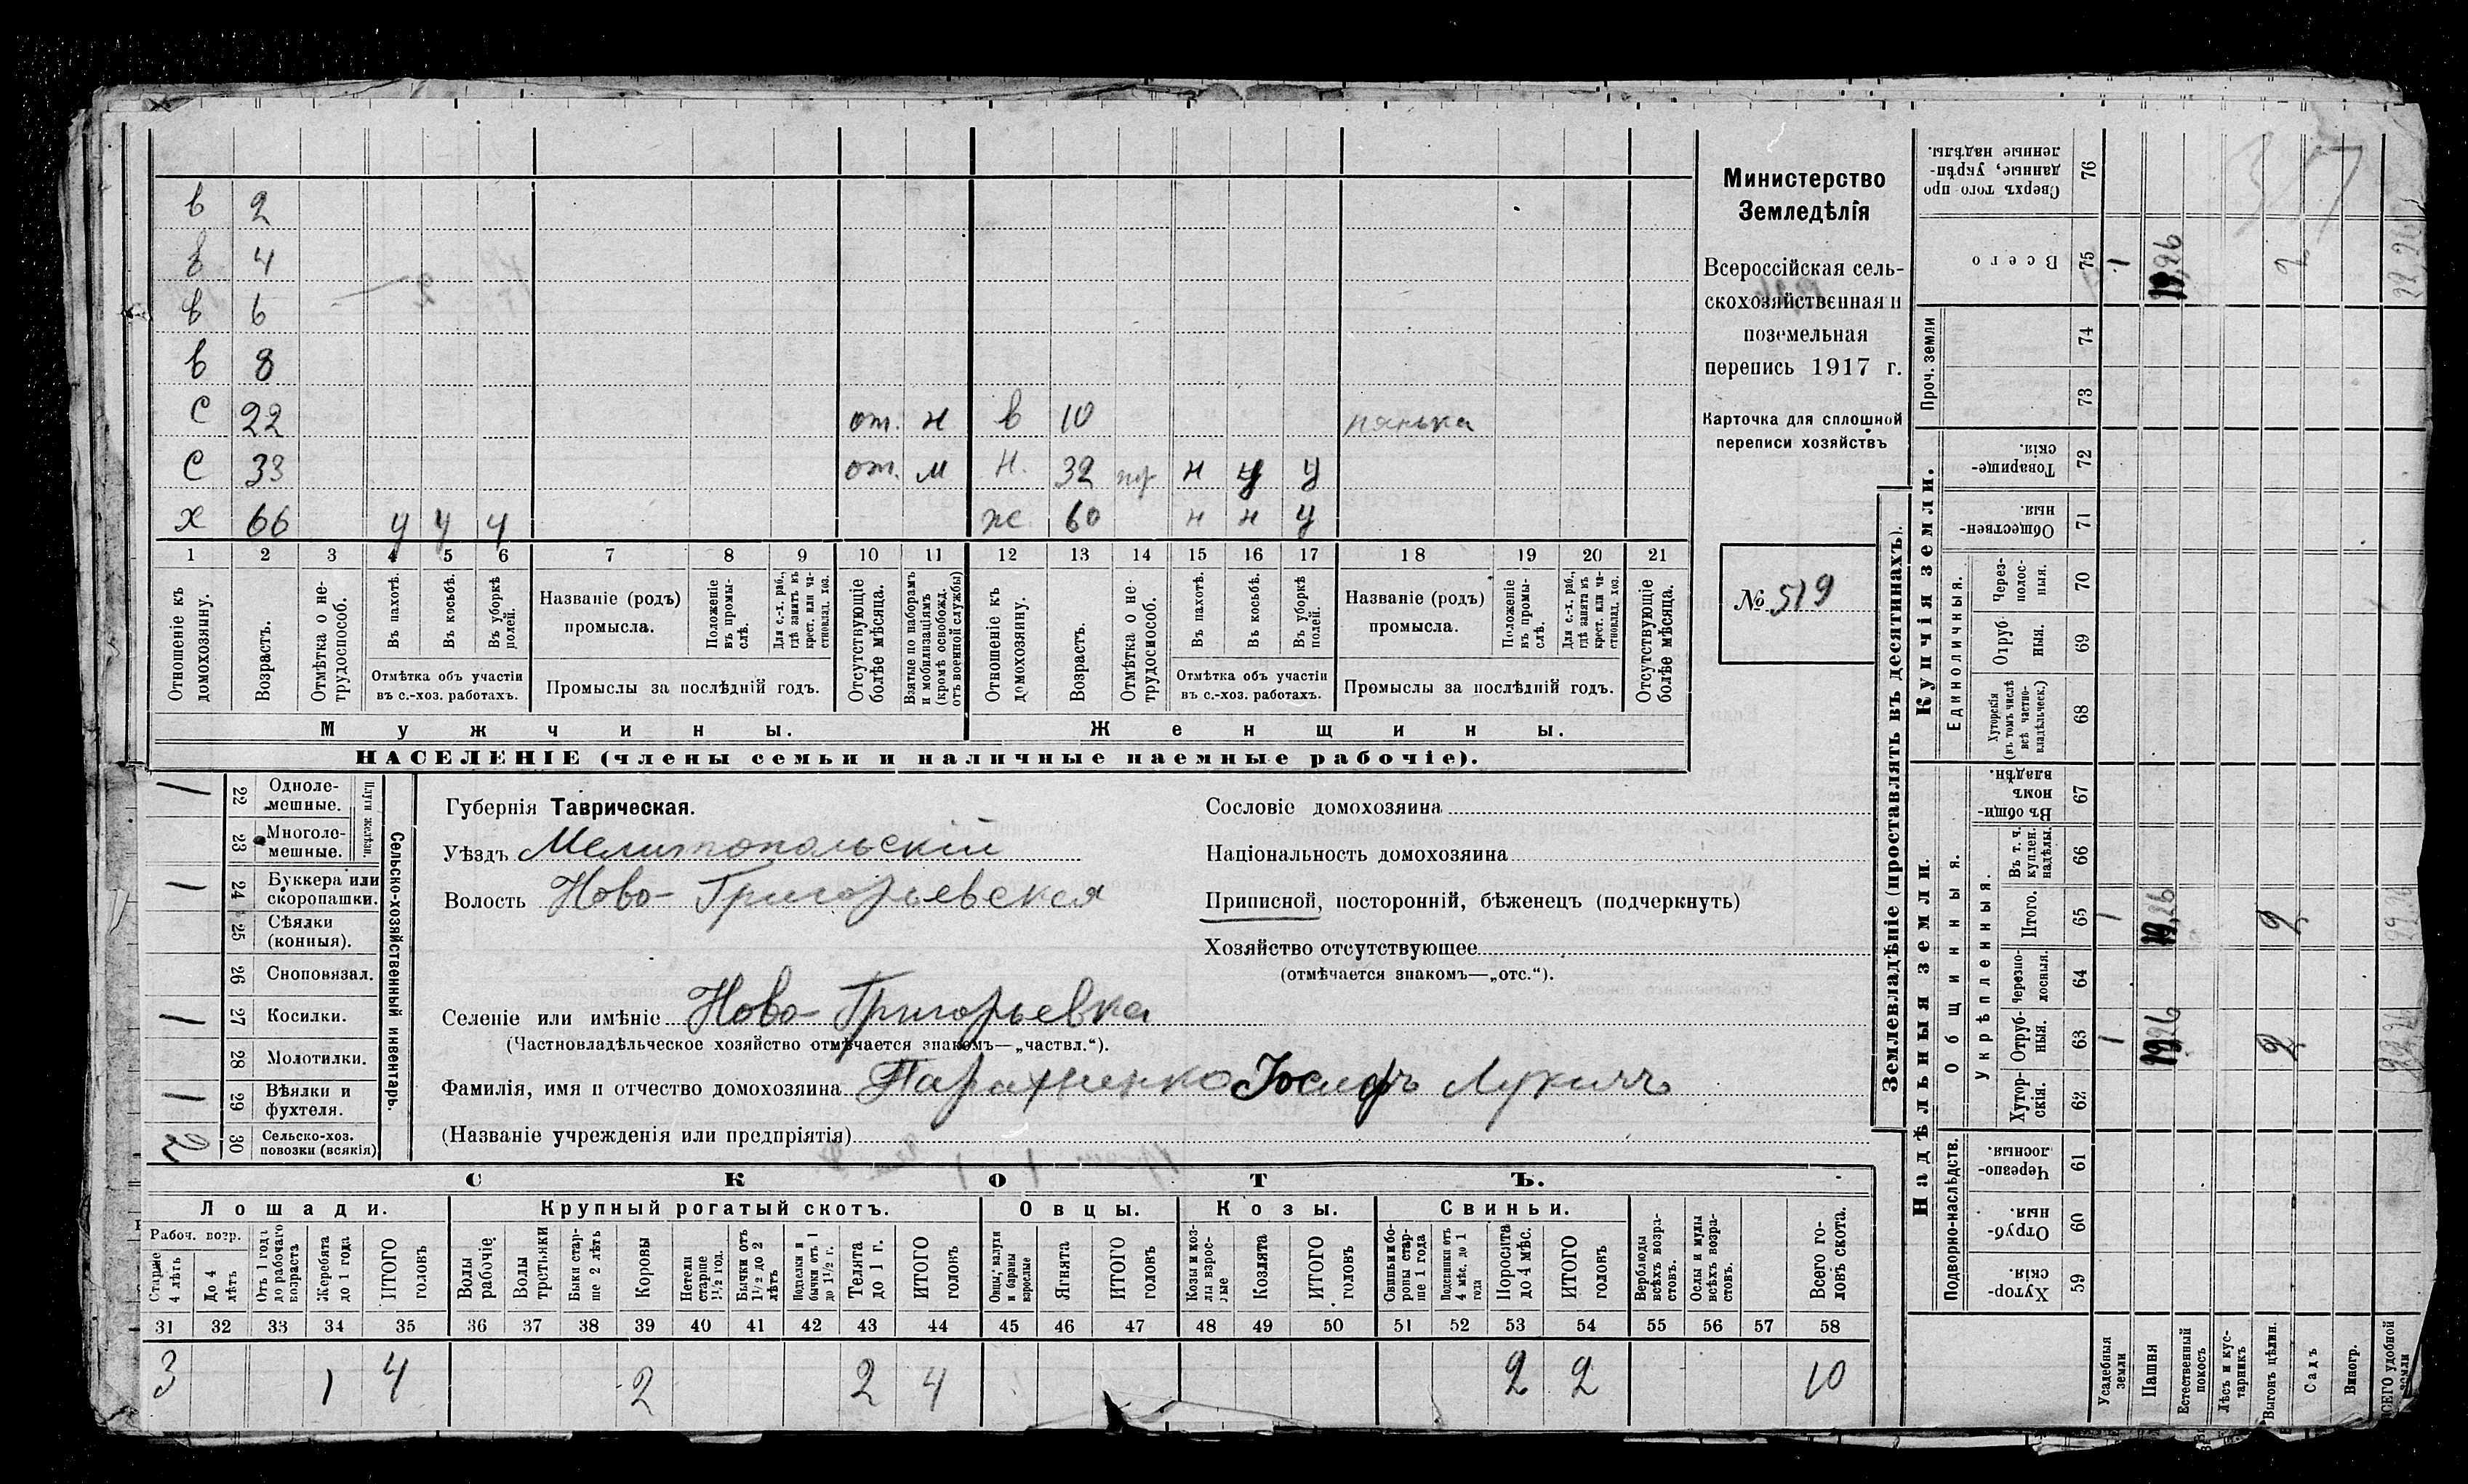 в 2
в 4
в 6
в 8
с 22 от. н в 10 нянька
с 33 от. м н. 32 н у у
х 66 у у у ж 60 н н у
1 2 3 4 5 6 7 8 9 10 11 12 13 14 15 16 17 18 19 20 21
Отношеніе къ домохозяину.
Возрастъ.
Отмѣтка о нетрудоспособ.
Въ пахотѣ.
Въ косьбѣ.
Въ уборкѣ полей.
Отмѣтка объ участіи въ с.-хоз. работахъ.
Названіе (родъ) промысла.
Положеніе въ промыслѣ.
Для с.-х. раб., гдѣ занятъ въ крест. или частновлад. хоз.
Промыслы за послѣдній годъ.
Отсутствующіе болѣе мѣсяца.
Взятые по наборамъ и мобилизаціямъ (кромѣ освобожд. отъ военной службы)
Отношеніе къ домохозяину.
Возрастъ.
Отмѣтка о нетрудоспособ.
Въ пахотѣ.
Въ косьбѣ.
Въ уборкѣ полей.
Отмѣтка объ участіи въ с.-хоз. работахъ.
Названіе (родъ) промысла.
Положеніе въ промыслѣ.
Для с.-х. раб., гдѣ занята въ крест. или частновлад. хоз.
Промыслы за послѣдній годъ.
Отсутствующіе болѣе мѣсяца.
Мужчины. Женщины.
НАСЕЛЕНІЕ (члены семьи и наличные наемные рабочіе).
Министерство
Земледѣлія
Всероссійская сель-
скохозяйственная и
поземельная
перепись 1917 г.
Карточка для сплошной
переписи хозяйствъ
№ 519
Сельско-хозяйственный инвентарь.
Плуги желѣзн.
1 22 Одноле-мешные.
23 Многоле-мешные.
1 24 Буккера или скоропашки.
25 Сѣялки (конныя).
26 Сноповязал.
1 27 Косилки.
28 Молотилки.
1 29 Вѣялки и фухтеля.
2 30 Сельско-хоз. повозки (всякія)
Губернія Таврическая.
Уѣздъ Мелитопольскій
Волость Ново-Григорьевская
Селеніе или имѣніе Ново-Григорьевка
(Частновладѣльческое хозяйство отмѣчается знакомъ—„частвл.“).
Фамилія, имя и отчество домохозяина Іосифъ Лукичъ
(Названіе учрежденія или предпріятія)
Сословіе домохозяина
Національность домохозяина
Приписной, посторонній, бѣженецъ (подчеркнуть)
Хозяйство отсутствующее
(отмѣчается знакомъ—„отс.“).
СКОТЪ.
Лошади. Крупный рогатый скотъ. Овцы. Козы. Свиньи.
Рабоч. возр.
Старше 4 лѣтъ
До 4 лѣтъ
Отъ 1 года до рабочаго возраста
Жеребята до 1 года
ИТОГО головъ
Волы рабочіе
Волы третьяки
Быки старше 2 лѣтъ
Коровы
Нетели старше 1½ год.
Бычки отъ 1½ до 2 лѣтъ
Подтелки и бычки отъ 1 до 1½ г.
Телята до 1 г.
ИТОГО головъ
Овцы, валухи и бараны взрослые
Ягнята
ИТОГО головъ
Козы и козлы взрослые
Козлята
ИТОГО головъ
Свиньи и боровы старше 1 года
Подсвинки отъ 4 мѣс. до 1 года
Поросята до 4 мѣс.
ИТОГО головъ
Верблюды всѣхъ возрастовъ.
Ослы и мулы всѣхъ возрастовъ.
Всего головъ скота.
31 32 33 34 35 36 37 38 39 40 41 42 43 44 45 46 47 48 49 50 51 52 53 54 55 56 57 58
3 1 4 2 2 4 2 2 10
Землевладѣніе (проставлять въ десятинахъ).
Купчія земли.
Надѣльныя земли.
Сверхъ того проданные, укрѣпленные надѣлы. 76
Всего 75 1 19,26 2 22,26
Проч. земли 74 73
Товарищескія. 72
Общественныя. 71
Единоличныя.
Черезполосныя. 70
Отрубныя. 69
Хуторскія (въ томъ числѣ всѣ частновладѣльческ.) 68
Общинныя.
Въ общинномъ владѣн. 67
Укрѣпленныя.
Въ т. ч. куплен. надѣлы. 66
Итого. 65 1 19,26 2 22,26
Черезполосныя. 64
Отрубныя. 63 1 19,26 2 22,26
Хуторскія. 62
Подворно-наслѣдств.
Черезполосныя. 61
Отрубныя. 60
Хуторскія. 59
Усадебныя земли
Пашня
Естественный покосъ
Лѣсъ и кустарникъ
Выгонъ цѣлин.
Садъ
Виногр.
ВСЕГО удобной земли
317